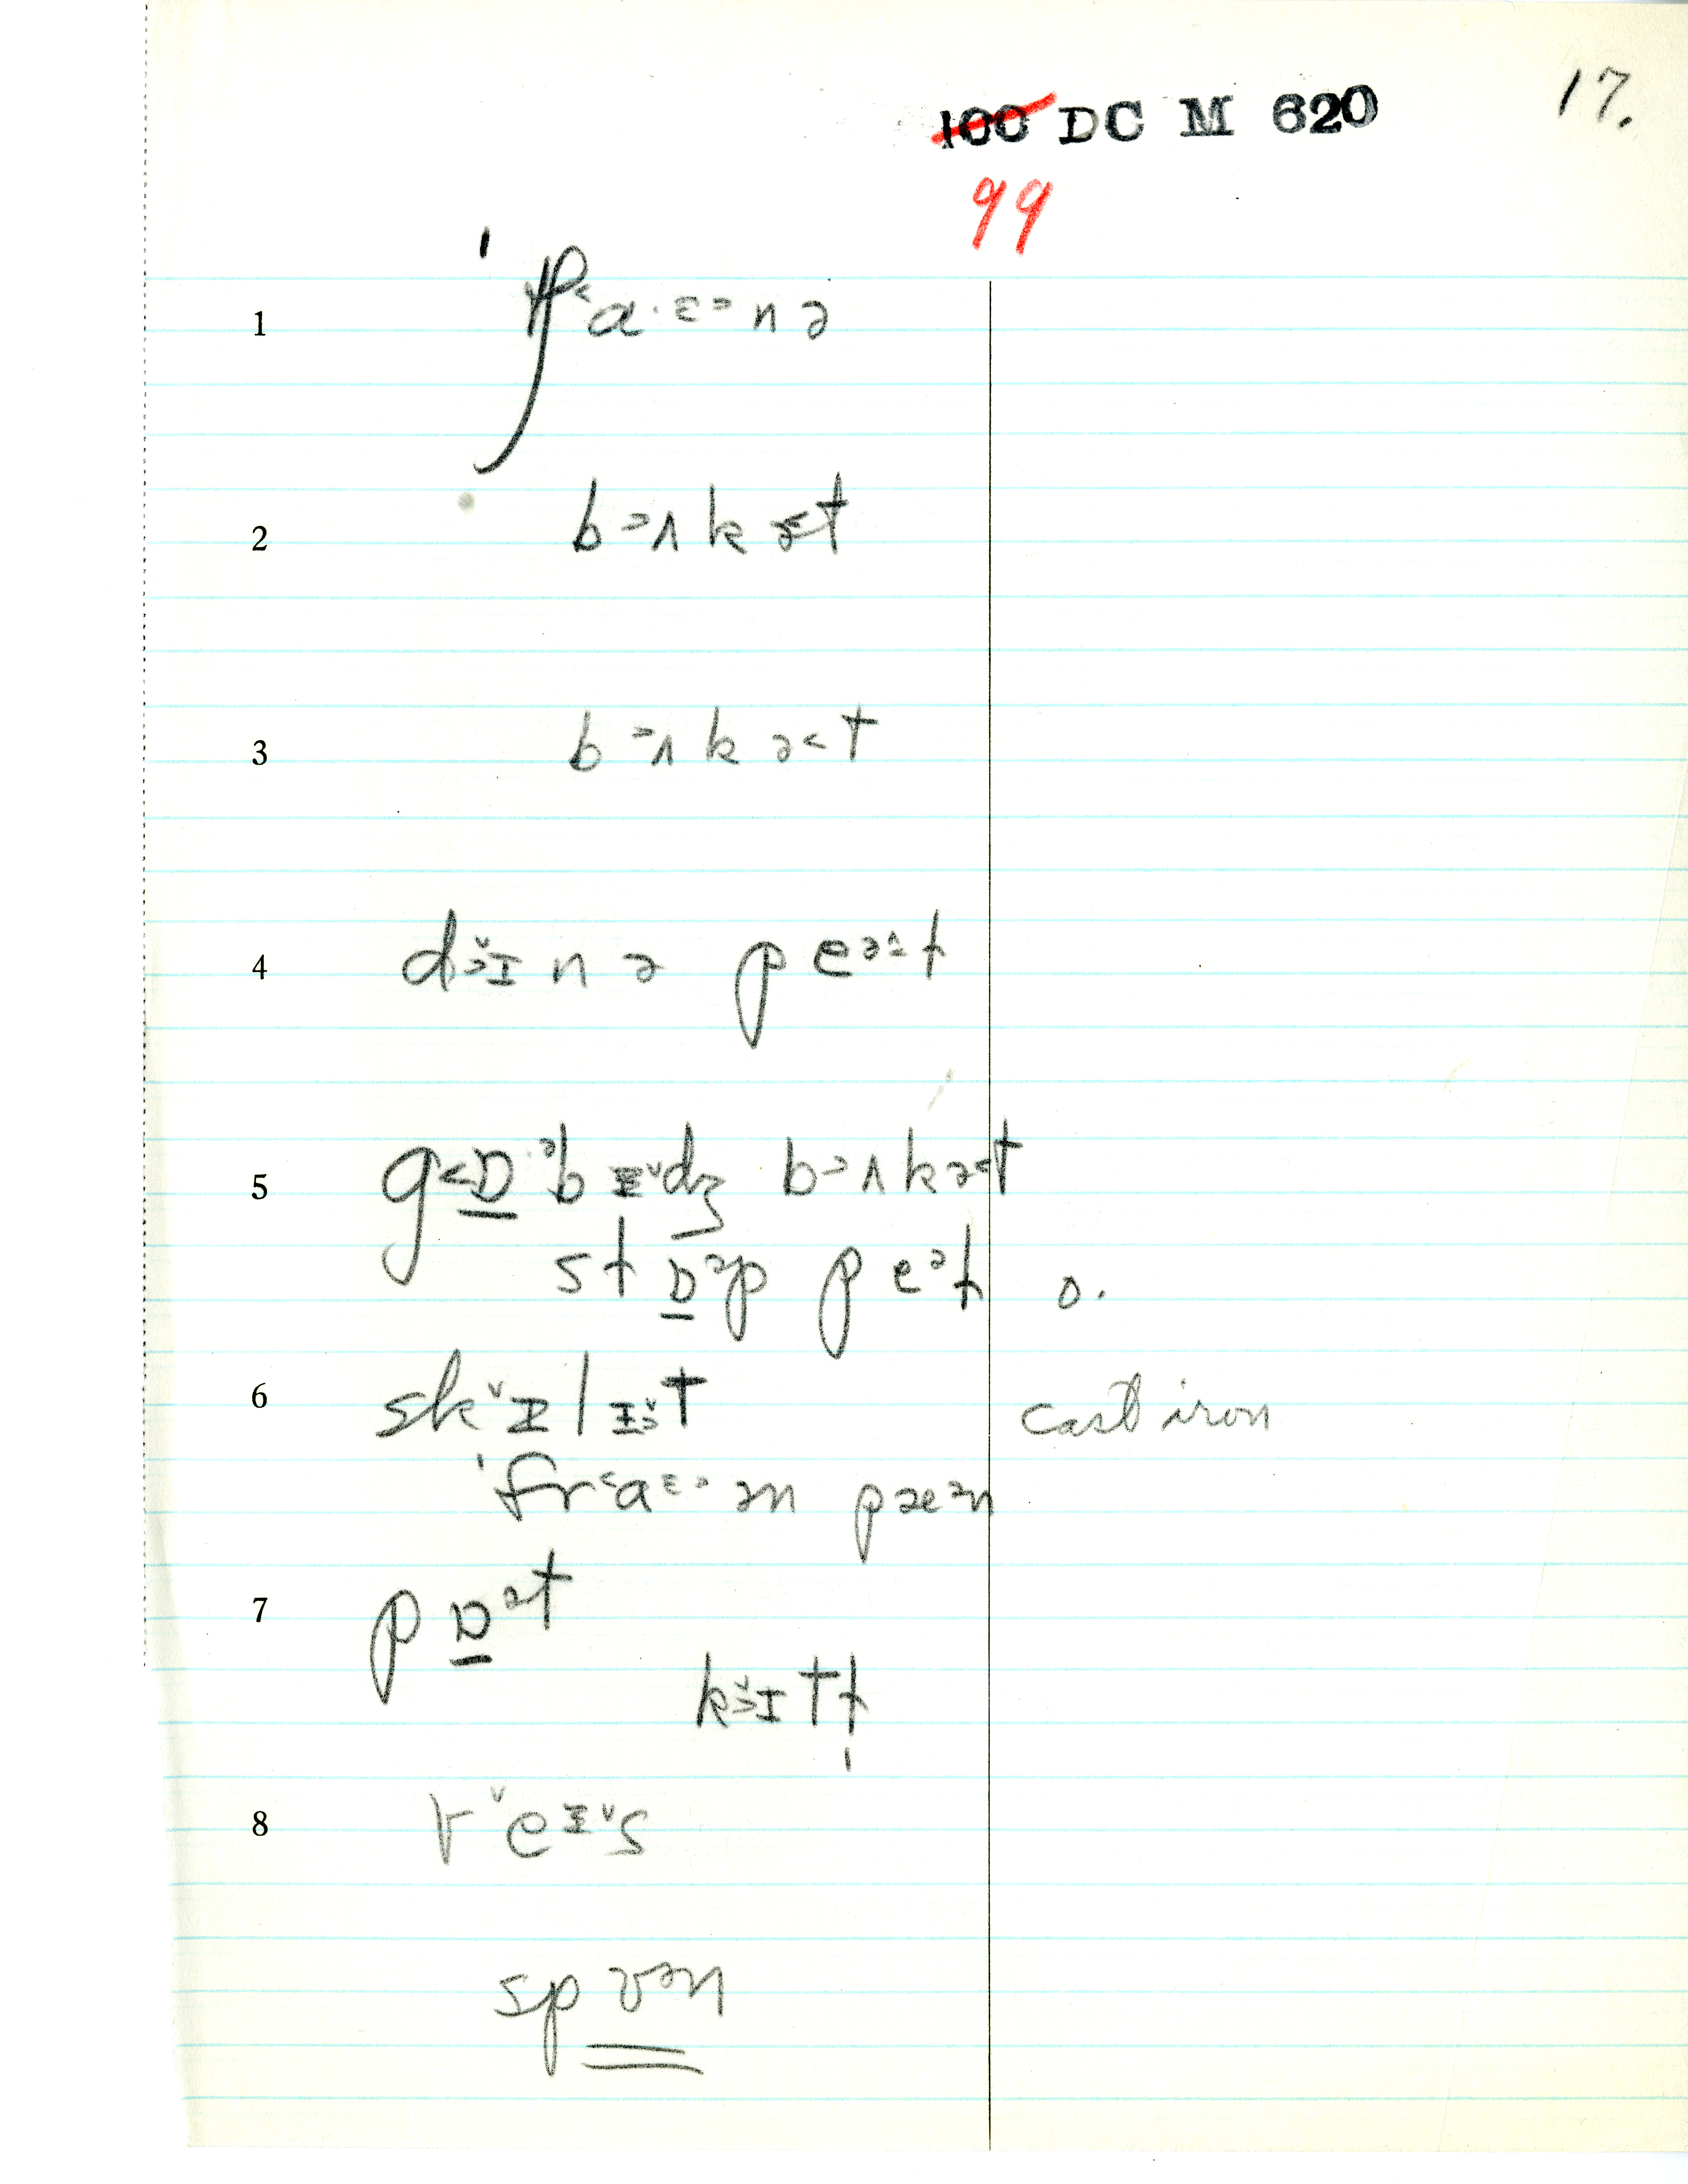 100 DC M 620
17.
99
1 ˈp˂ɑ·ɛ˃nə
2 b˃ʌkə˂t
3 b˃ʌkə˂t
4 d˃̌ɪnə peə^t
5 g˂ɒ·əbɪ̵ˇdʒ b˃ʌkə˂t
stɒəp peət o.
6 skˇɪ̵lɪ̵˃̌t cast iron
ˈfr˂aɛ˃ən pæən
7 pɒət
k˃̌ɪtḷ
8 vˇeɪ̵ˇs
spʊən